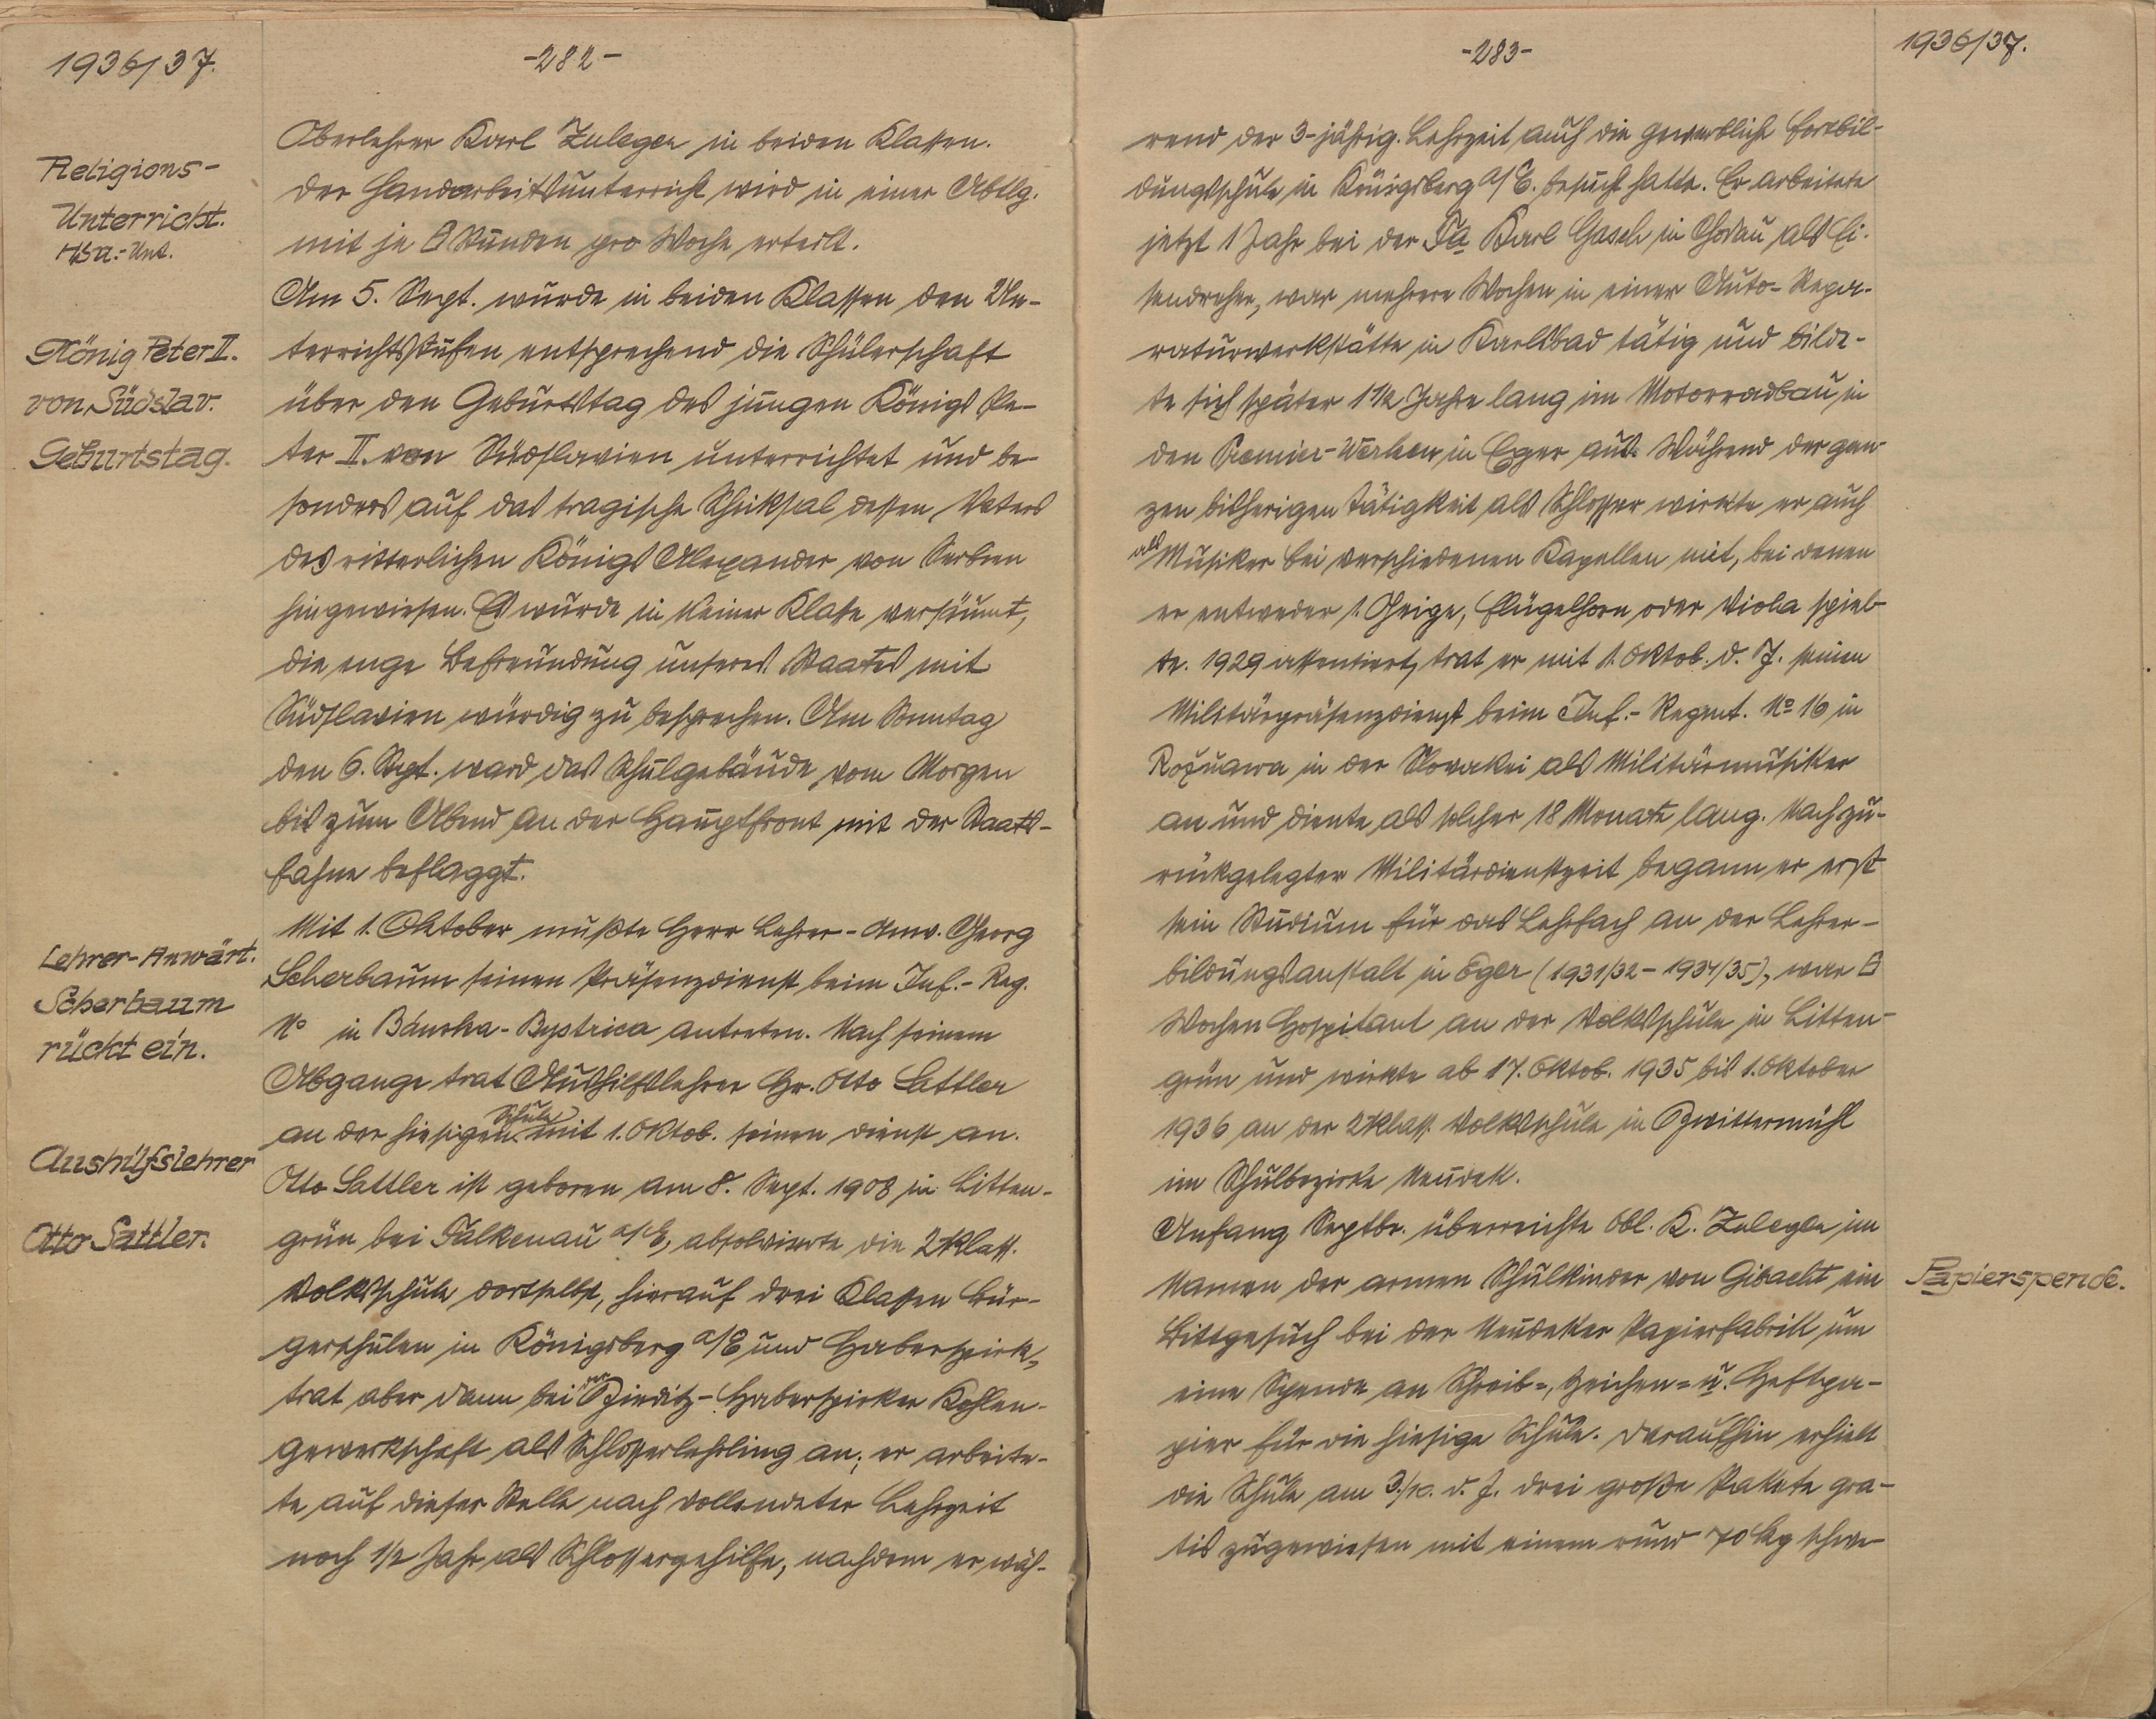 1936/37.
-282-
Religions-
Unterricht.
HA.-Unt.
König Peter II.
von Südslav.
Geburtstag.
Lehrer-Anwärt.
Scherbaum
rückt ein.
Aushilfslehrer
Otto Sattler.
Oberlehrer Karl Zuleger in beiden Klassen.
Der Handarbeitsunterricht wird in einer Abtlg.
mit je Stunden pro Woche erteilt.
Am 5. Sept. wurde in beiden Klassen den Un-
terrichtsstufen entsprechend die Schülerschaft
über den Geburtstag des jungen Königs Pe-
ter II. von Südslavien unterrichtet und be-
sonders auf das tragische Schiksal dessen Vaters
des ritterlichen Königs Alexander von Serbien
hingewiesen. Es wurde in keiner Klasse versäumt,
die enge Befreundung unseres Staates mit
Südslavien würdig zu besprechen. Am Sonntag
den 6. Sept. ward das Schulgebäude vom Morgen
bis zum Abend an der Hauptfront mit der Staats-
fahne beflaggt.
Mit 1. Oktober mußte Herr Lehrer-Anw. Georg
Scherbaum seinen Präsenzdienst beim Inf.-Reg.
No in Bánska-Bystrica antreten. Nach seinem
Abgange trat Aushilfslehrer Hr. Otto Sattler
an der hiesigen Schule mit 1. Oktob. seinen Dienst an.
Otto Sattler ist geboren am 8. Sept. 1908 in Litten-
grün bei Falkenau a/E, absolvierte die 2klass.
Volksschule dortselbst, hierauf drei Klassen Bür-
gerschulen in Königsberg a/E und Haberspirk,
trat aber dann bei der Zieditz-Haberspirker Kohlen-
gewerkschaft als Schlosserlehrling an; er arbeite-
te auf dieser Stelle nach vollendeter Lehrzeit
noch 1/2 Jahr als Schlossergehilfe, nachdem er wäh-
-283-
1936/37.
rend der 3-jährig. Lehrzeit auch die gewerbliche Fortbil-
dungsschule in Königsberg a/E. besucht hatte. Er arbeitete
jetzt 1 Jahr bei der Fa Karl Gasch in Chodau als Ei-
sendreher, war mehrere Wochen in einer Auto-Repa-
raturwerkstätte in Karlsbad tätig und bilde-
te sich später 1 1/2 Jahre lang im Motorradbau in
den Premier-Werken in Eger aus. Während der gan-
zen bisherigen Tätigkeit als Schlosser wirkte er auch
als Musiker bei verschiedenen Kapellen mit, bei denen
er entweder 1. Geige, Flügelhorn oder Viola spiel-
te. 1929 assentiert, trat er mit 1. Oktob. d. J. seinen
Militärpräsenzdienst beim Inf.-Regmt. No 16 in
Rožnawa in der Slovakei als Militärmusiker
an und diente als solcher 18 Monate lang. Nach zu-
rückgelegter Militärdienstzeit begann er erst
sein Studium für das Lehrfach an der Lehrer-
bildungsanstalt in Eger (1931/32-1934/35), war
Wochen Hospitant an der Volksschule in Litten-
grün und wirkte ab 17. Oktob. 1935 bis 1. Oktober
1936 an der 2klass. Volksschule in Zwittermühl
im Schulbezirke Neudek.
Anfang Septbr. überreichte Obl. K. Zuleger im
Namen der armen Schulkinder von Gibacht ein
Bittgesuch bei der Neudeker Papierfabrik um
eine Spende an Schreib-, Zeichen- u. Heftpa-
pier für die hiesige Schule. Daraufhin erhielt
die Schule am 3./10. d. J. drei große Pakete gra-
tis zugewiesen mit einem rund 70 kg schwe-
Papierspende.